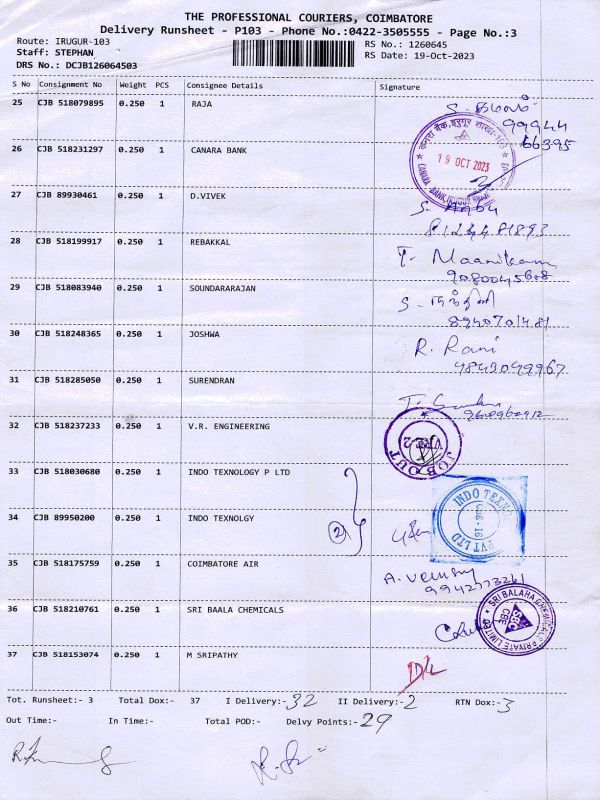 THE PROFESSIONAL COURIERS, COIMBATORE
Delivery Runsheet - P103 - Phone No.:0422-3505555 - Page No.:3
Route: IRUGUR-103
Staff: STEPHAN
DRS No.: DCJB126064503
RS No.: 1260645
RS Date: 19-Oct-2023
S No Consignment No Weight PCS Consignee Details Signature
25 CJB 518079895 0.250 1 RAJA
99944
66395
26 CJB 518231297 0.250 1 CANARA BANK
19 OCT 2023
27 CJB 89930461 0.250 1 D.VIVEK
S. Anbu
28 CJB 518199917 0.250 1 REBAKKAL
T. Maanikam
9080045608
29 CJB 518083940 0.250 1 SOUNDARARAJAN
8940701481
30 CJB 518248365 0.250 1 JOSHWA
R. Rani
31 CJB 518285050 0.250 1 SURENDRAN
32 CJB 518237233 0.250 1 V.R. ENGINEERING
JOB OUT
33 CJB 518030680 0.250 1 INDO TEXNOLOGY P LTD
INDO TEXNO
PVT LTD
34 CJB 89950200 0.250 1 INDO TEXNOLGY
2
35 CJB 518175759 0.250 1 COIMBATORE AIR
36 CJB 518210761 0.250 1 SRI BAALA CHEMICALS
SRI BALAHA CHEMICALS PRIVATE LIMITED
CBE
37 CJB 518153074 0.250 1 M SRIPATHY
D/L
Tot. Runsheet:- 3 Total Dox:- 37 I Delivery:- 32 II Delivery:- 2 RTN Dox:- 3
Out Time:- In Time:- Total POD:- Delvy Points:- 29